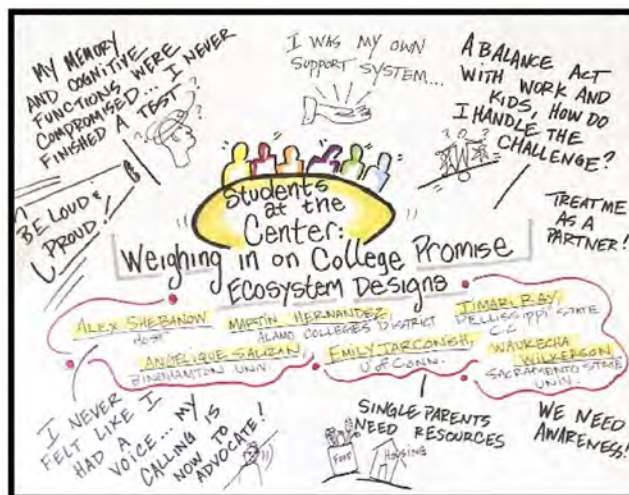 MY MEMORY
AND COGNITIVE
FUNCTIONS WERE
COMPROMISED... I NEVER
FINISHED A TEST
I WAS MY OWN
SUPPORT SYSTEM...
A BALANCE ACT
WITH WORK AND
KIDS, HOW DO
I HANDLE THE
CHALLENGE?
BE LOUD &
PROUD!
TREAT ME
AS A
PARTNER!
Students
at the
Center:
Weighing in on College Promise
Ecosystem Designs
ALEX SHEBANOW
HOST
MARTIN HERNANDEZ,
ALAMO COLLEGES DISTRICT
JIMARI RAY,
PELLISSIPPI STATE
C.C.
ANGELIQUE SALIZAN,
BINGHAMTON UNIV.
EMILY TARCONISH,
U of CONN.
WAUKECHA
WILKERSON
SACRAMENTO STATE
UNIV.
I NEVER
FELT LIKE I
HAD A
VOICE... MY
CALLING IS
NOW TO
ADVOCATE!
SINGLE PARENTS
NEED RESOURCES
FOOD
HOUSING
WE NEED
AWARENESS!